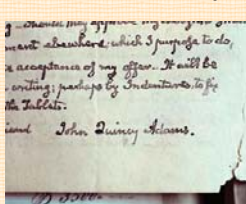 should may approve my
ment elsewhere; which I purpose to do,
acceptance of my offer. It will be
writing; perhaps by Indentures, to fix
the Tablets.
John Quincy Adams.